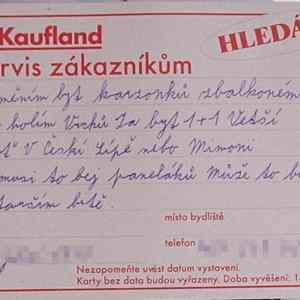 Kaufland
HLEDÁ
rvis zákazníkům
měním byt karzonků zbalkoném
holím Vrchů Za byt 1+1 Vetší
V České Lípě nebo Mimoni
musi to bej paneláků Může to b
starším
místo bydliště
telefon
Nezapomeňte uvést datum vystavení.
Karty bez data budou vyřazeny. Doba vyvěšení: 1